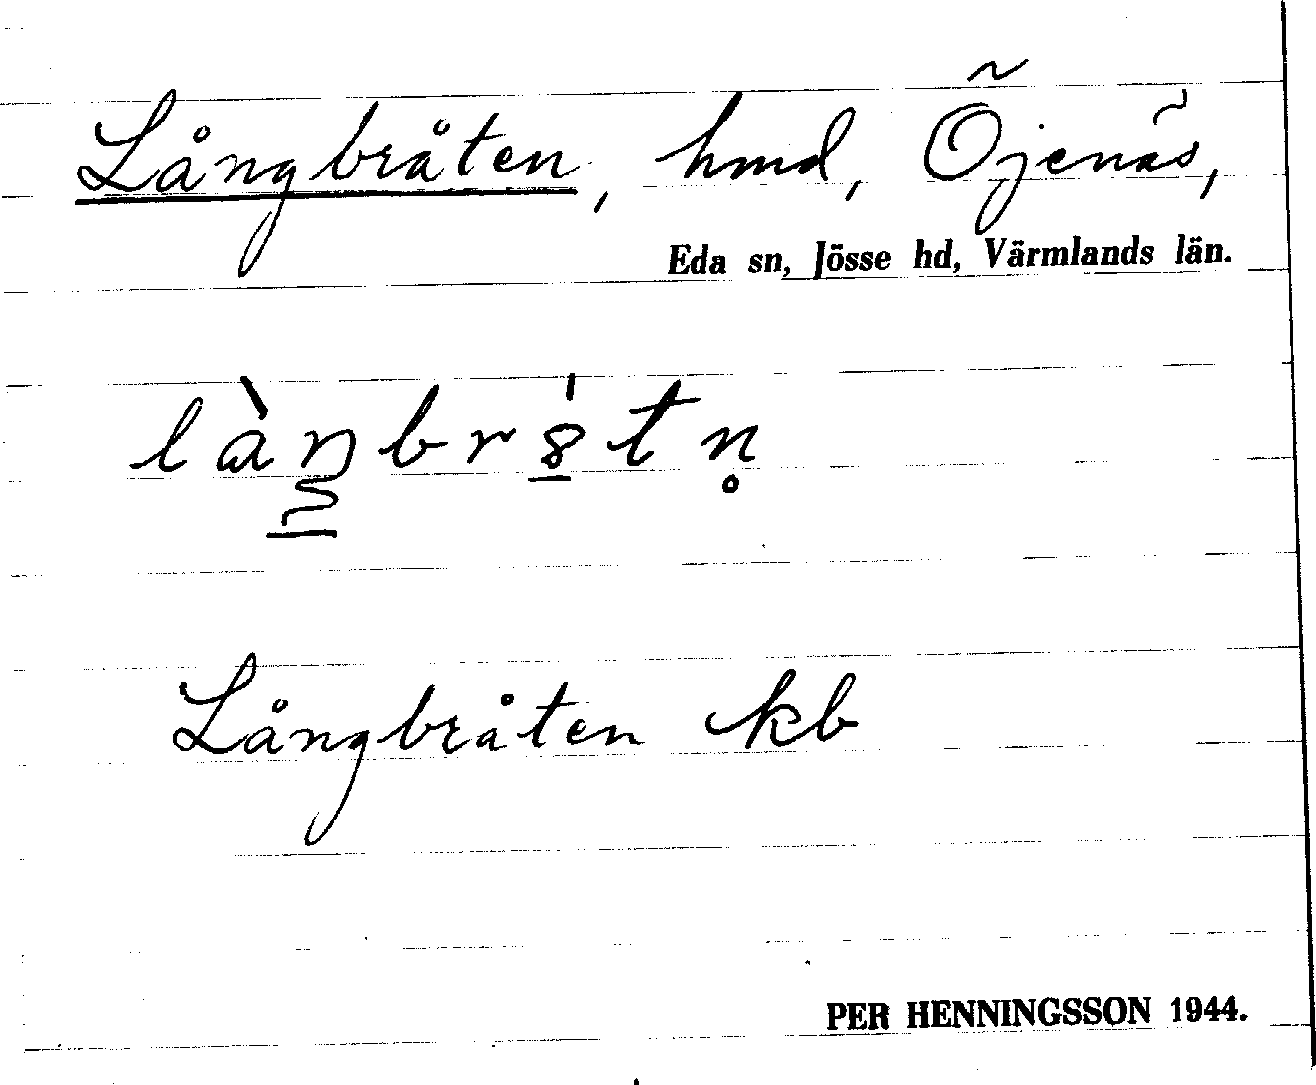 Långbråten, hmd, Öjenäs,
Eda sn, Jösse hd, Värmlands län.
làŋbr8̲̍tn̥
Långbråten kb
PER HENNINGSSON 1944.